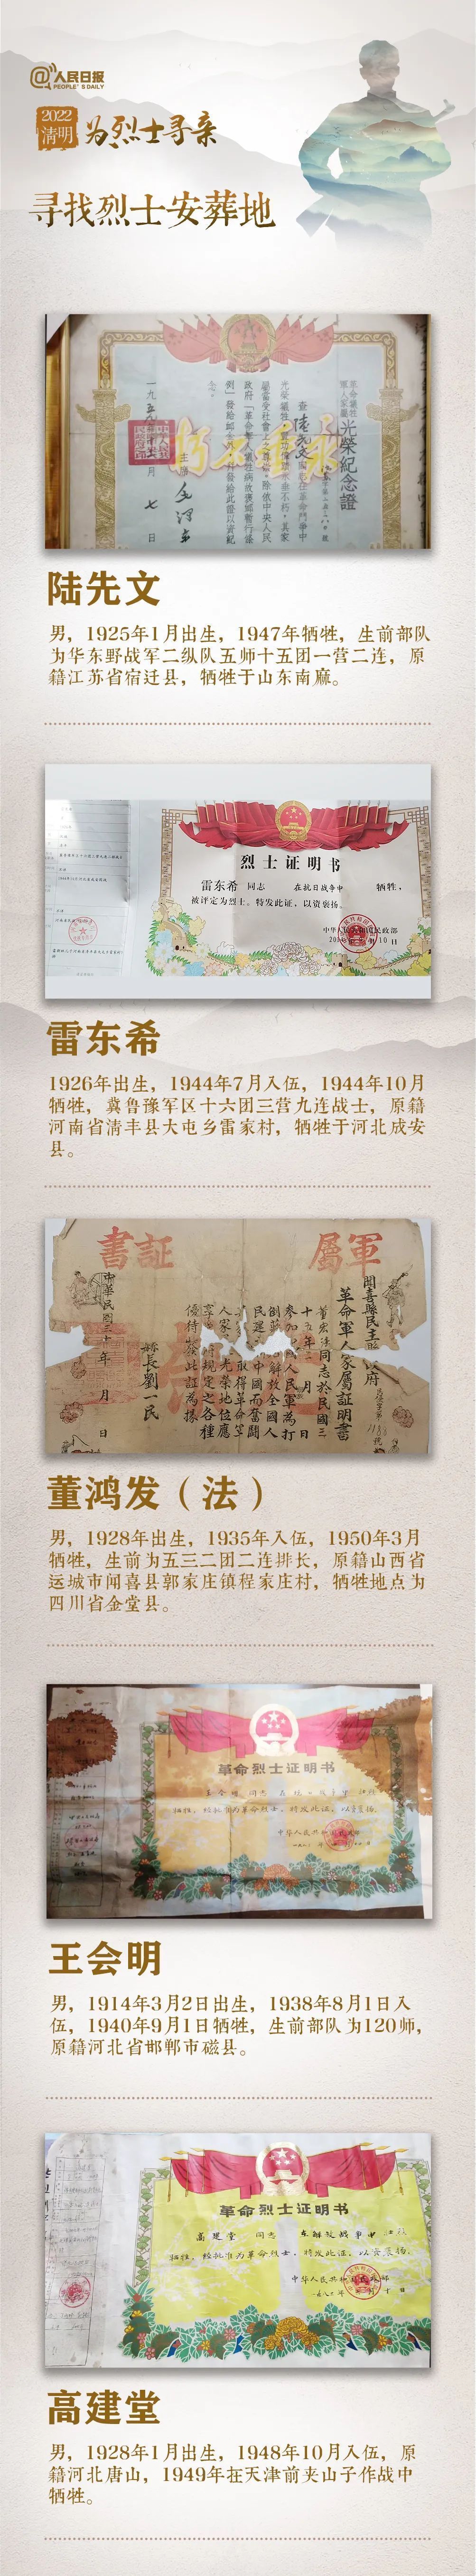 @人民日报
PEOPLE'S DAILY
2022
清明
为烈士寻亲
寻找烈士安葬地
革命牺牲
军人家属
光榮紀念證
永垂不朽
陆先文
男，1925年1月出生，1947年牺牲，生前部队
为华东野战军二纵队五师十五团一营二连，原
籍江苏省宿迁县，牺牲于山东南麻。
烈士证明书
雷东希 同志 在抗日战争中 牺牲，
被评定为烈士。特发此证，以资褒扬。
中华人民共和国民政部
雷东希
1926年出生，1944年7月入伍，1944年10月
牺牲，冀鲁豫军区十六团三营九连战士，原籍
河南省清丰县大屯乡雷家村，牺牲于河北成安
县。
軍屬
証書
革命軍人家屬証明書
縣長劉一民
董鸿发（法）
男，1928年出生，1935年入伍，1950年3月
牺牲，生前为五三二团二连排长，原籍山西省
运城市闻喜县郭家庄镇程家庄村，牺牲地点为
四川省金堂县。
革命烈士证明书
王会明
男，1914年3月2日出生，1938年8月1日入
伍，1940年9月1日牺牲，生前部队为120师，
原籍河北省邯郸市磁县。
革命烈士证明书
高建堂 同志 在解放战争中
牺牲，经批准为革命烈士，特发此证，以资褒扬。
高建堂
男，1928年1月出生，1948年10月入伍，原
籍河北唐山，1949年在天津前夹山子作战中
牺牲。